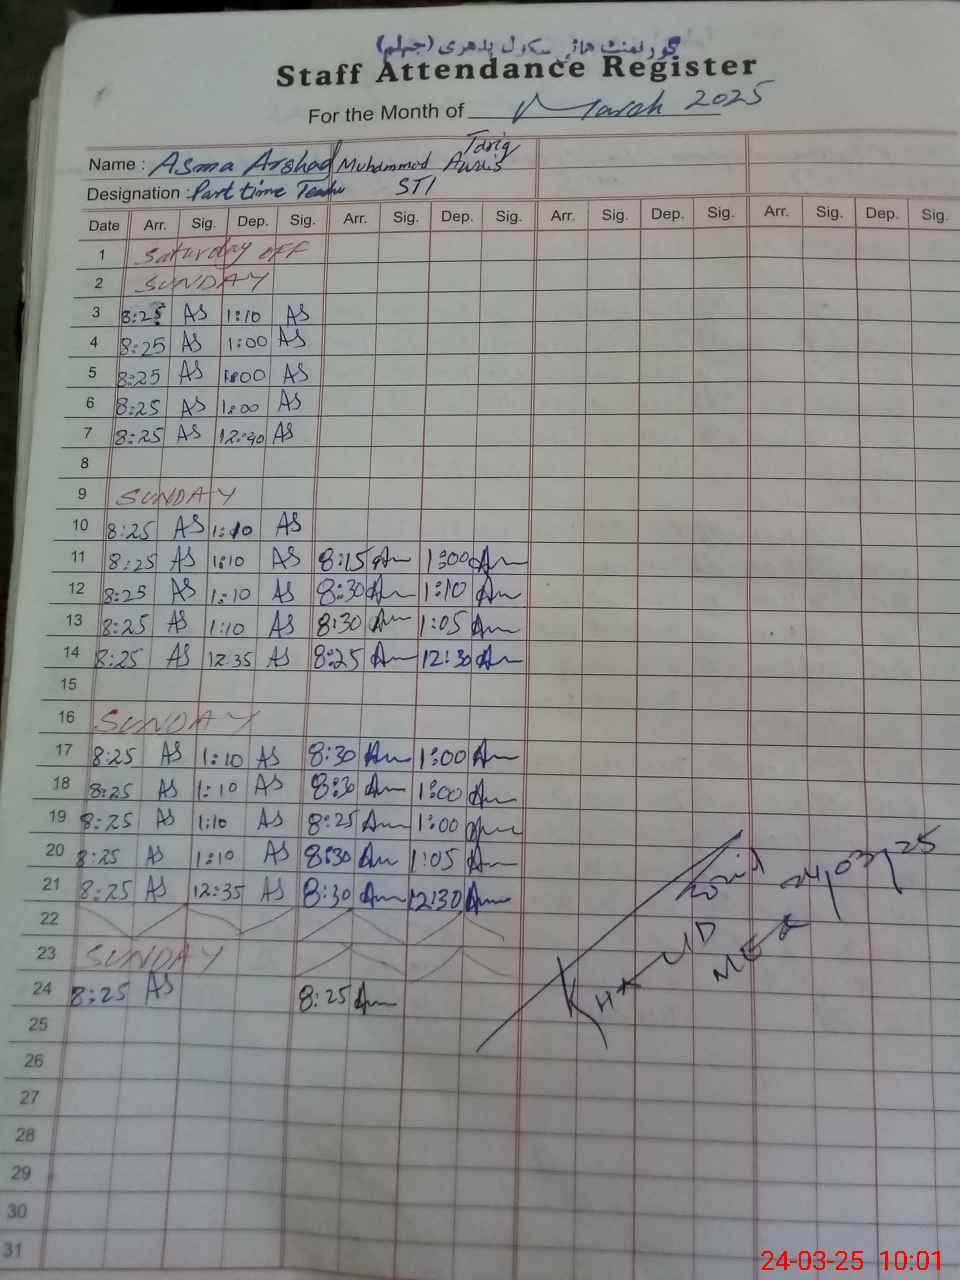 گورنمنٹ ہائی سکول پدھری (جہلم)
Staff Attendance Register
For the Month of March 2025
Name : Asma Arshad Muhammad Tariq Awais
Designation : Part time Teacher STI
Date Arr. Sig. Dep. Sig. Arr. Sig. Dep. Sig. Arr. Sig. Dep. Sig. Arr. Sig. Dep. Sig.
1 Saturday OFF
2 SUNDAY
3 8:25 AS 1:10 AS
4 8:25 AS 1:00 AS
5 8:25 AS 1:00 AS
6 8:25 AS 1:00 AS
7 8:25 AS 12:40 AS
8
9 SUNDAY
10 8:25 AS 1:10 AS
11 8:25 AS 1:10 AS 8:15 1:00
12 8:25 AS 1:10 AS 8:30 1:10
13 8:25 AS 1:10 AS 8:30 1:05
14 8:25 AS 12:35 AS 8:25 12:30
15
16 SUNDAY
17 8:25 AS 1:10 AS 8:30 1:00
18 8:25 AS 1:10 AS 8:30 1:00
19 8:25 AS 1:10 AS 8:25 1:00
20 8:25 AS 1:10 AS 8:30 1:05
21 8:25 AS 12:35 AS 8:30 12:30
22
23 SUNDAY
24 8:25 AS 8:25
25
26
27
28
29
30
31
MEA 24/03/25
24-03-25 10:01